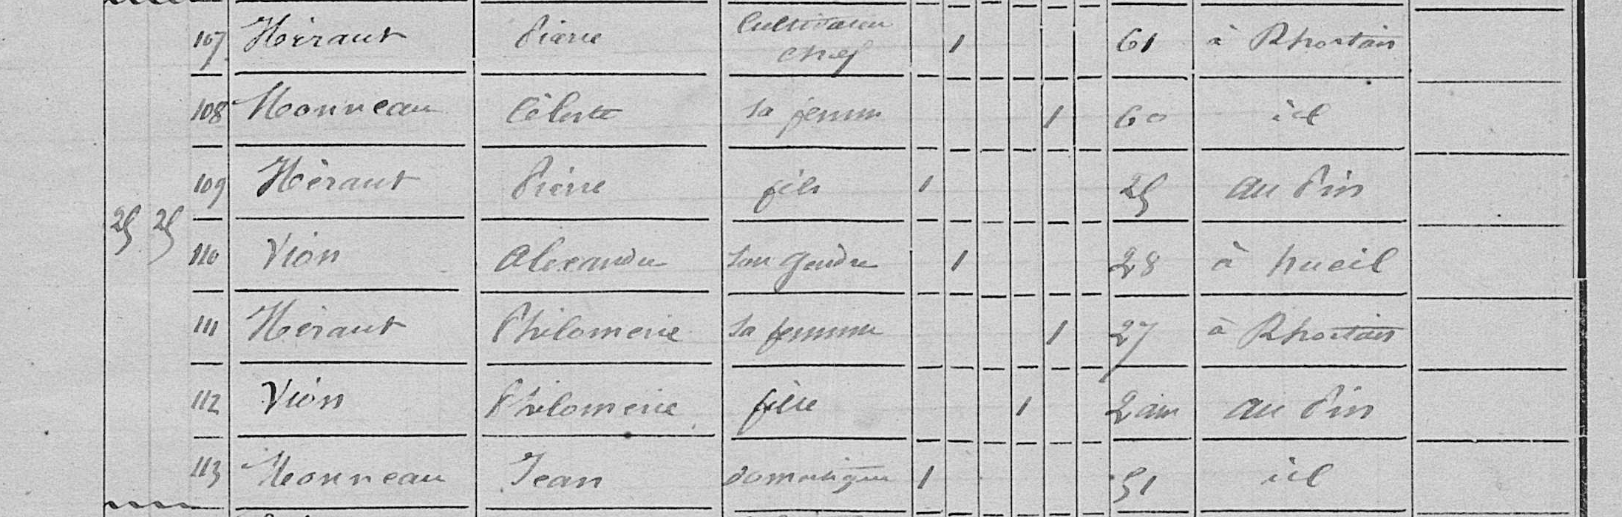 107 Héraut Pierre Cultivateur chef 1 61 à Rhortais
108 Monneau Céleste sa femme 1 60 id
109 Héraut Pierre fils 1 25 au Pin
25 25
110 Vion Alexandre son gendre 1 28 à Nueil
111 Héraut Philomène sa femme 1 27 à Rhortais
112 Vion Philomène fille 1 2 ans au Pin
113 Monneau Jean domestique 1 51 id